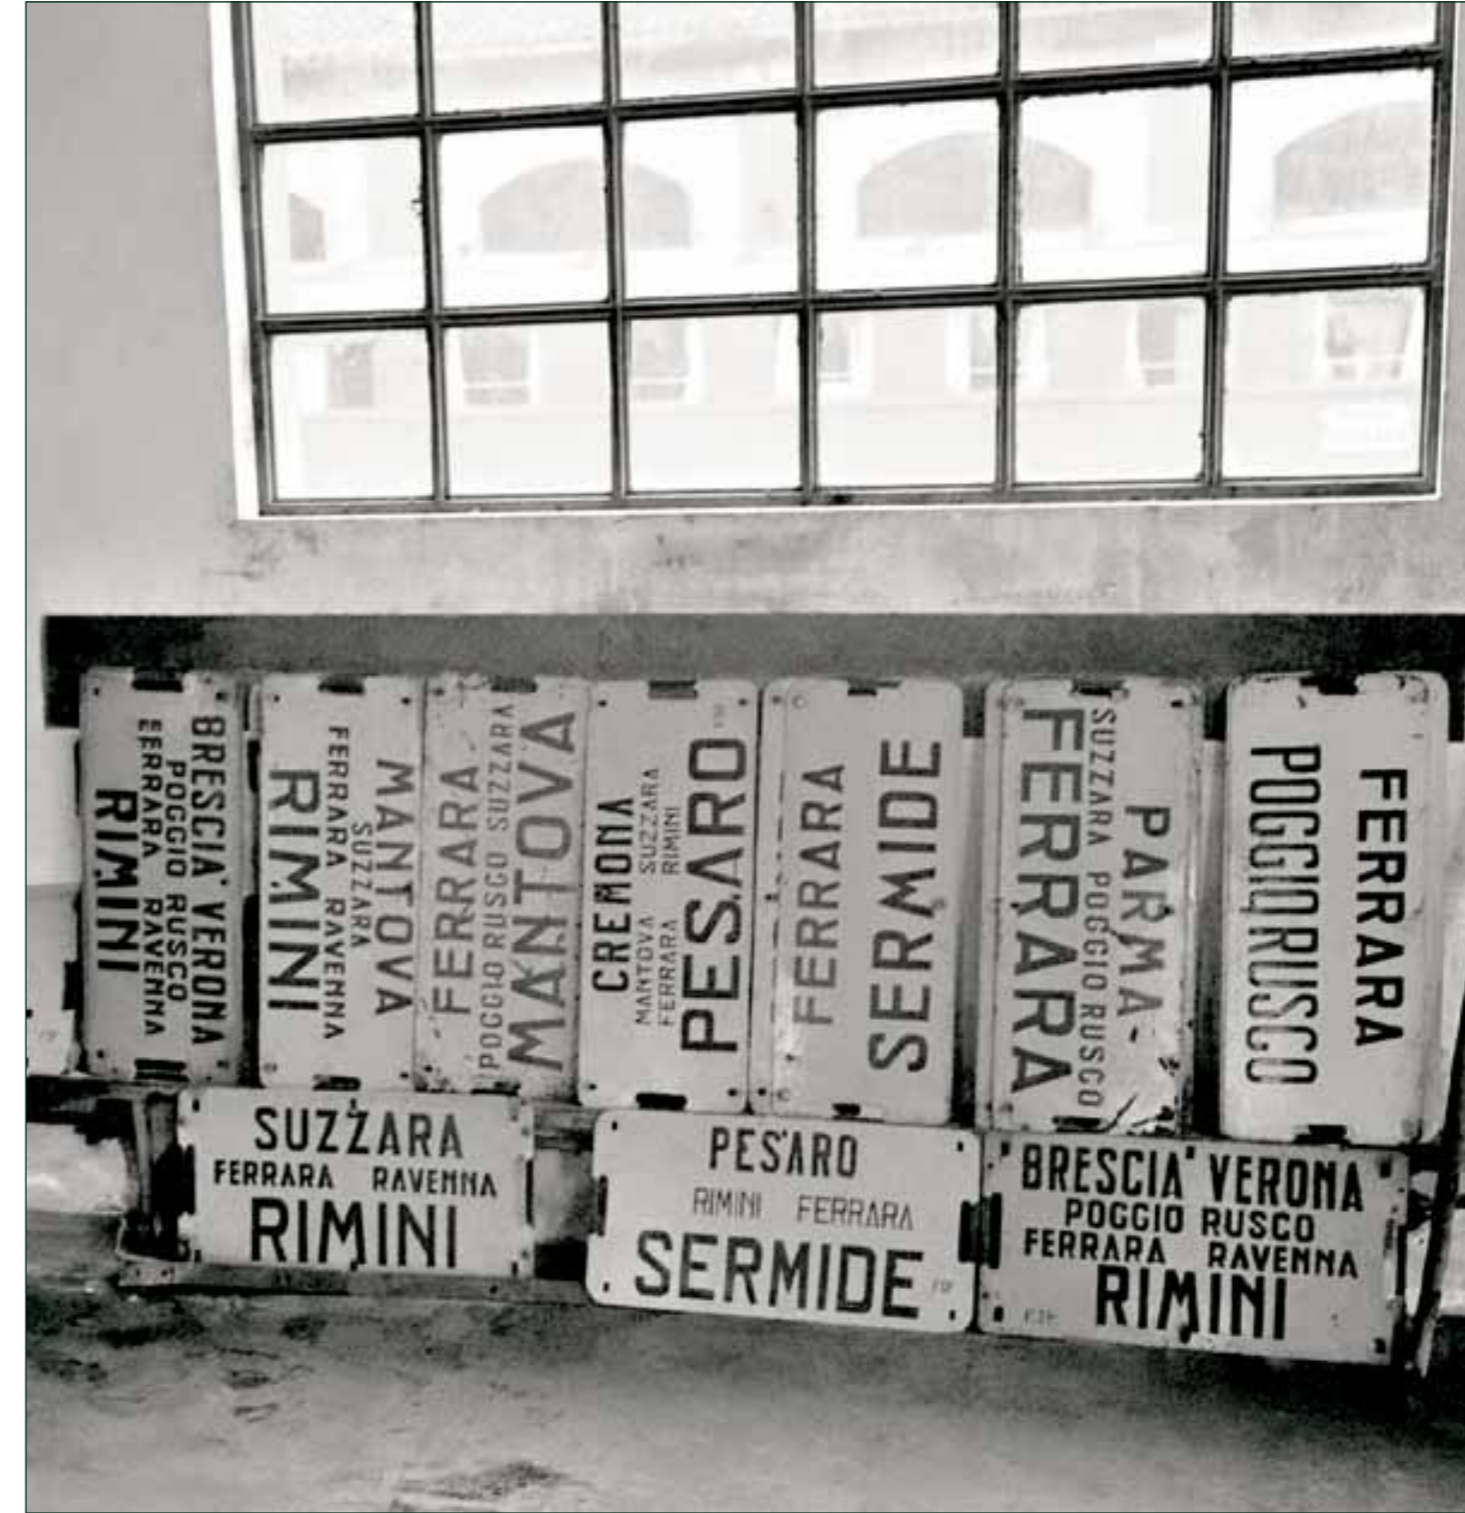 BRESCIA VERONA
POGGIO RUSCO
FERRARA RAVENNA
RIMINI
MANTOVA
SUZZARA
FERRARA RAVENNA
RIMINI
FERRARA
POGGIO RUSCO SUZZARA
MANTOVA
CREMONA
MANTOVA SUZZARA
FERRARA RIMINI
PESARO
FERRARA
SERMIDE
PARMA
SUZZARA POGGIO RUSCO
FERRARA
FERRARA
POGGIO RUSCO
SUZZARA
FERRARA RAVENNA
RIMINI
PESARO
RIMINI FERRARA
SERMIDE
BRESCIA VERONA
POGGIO RUSCO
FERRARA RAVENNA
RIMINI